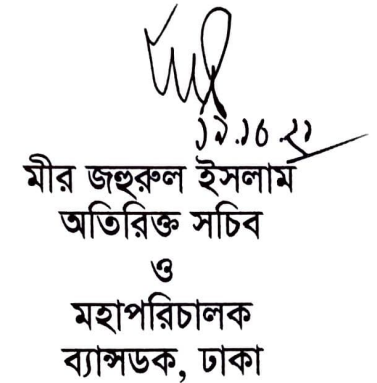 ১৯.১০.২১
মীর জহুরুল ইসলাম
অতিরিক্ত সচিব
ও
মহাপরিচালক
ব্যান্সডক, ঢাকা